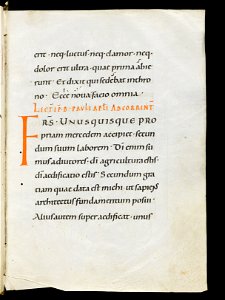 erit · neq· luctus · neq· clamor · neq·
dolor erit ultra · quae prima abie
runt · Et dixit qui sedebat in thro
no · Ecce nova facio omnia ·
LECTIO B PAULI APLI AD CORINT
FRS · UNUSQUISQUE PRO
priam mercedem accipiet · secun
dum suum laborem · Di enim su
mus adiutores · di agricultura estis ·
di aedificatio estis · Secundum gra
tiam quae data est michi · ut sapiens
architectus fundamentum posui ·
Alius autem superaedificat · unus